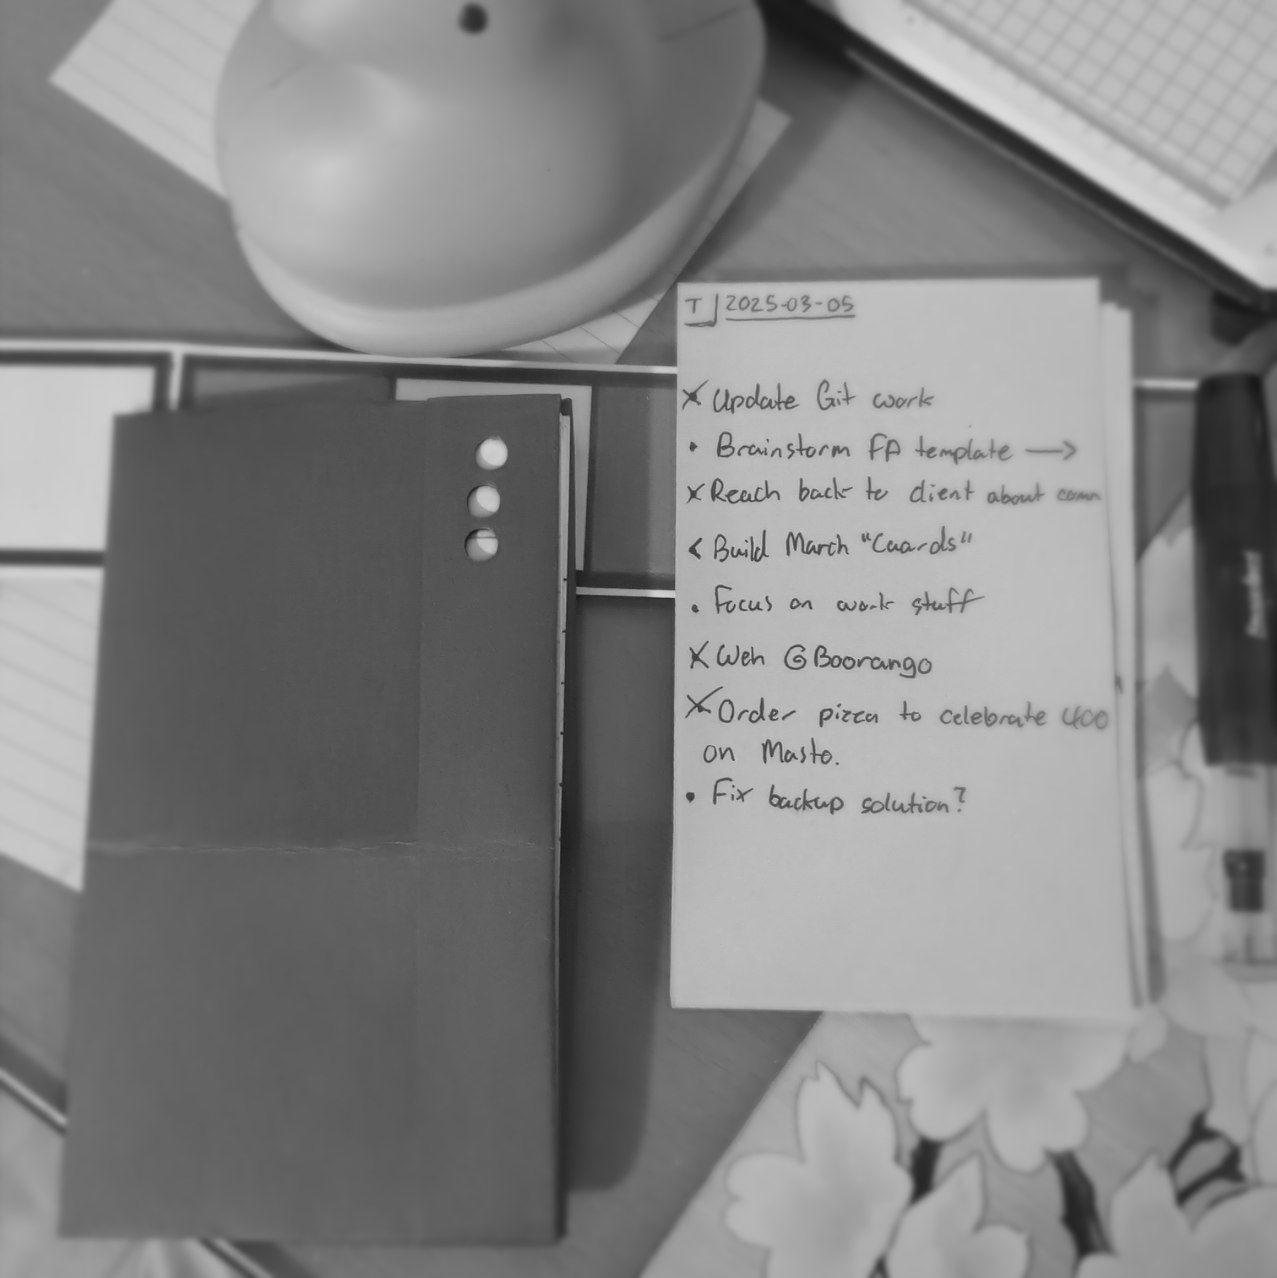 T 2025-03-05
× Update Git work
• Brainstorm FA template →
× Reach back to client about comm
< Build March "Cuards"
• Focus on work stuff
× Weh @Boorango
× Order pizza to celebrate 400
on Masto.
• Fix backup solution?